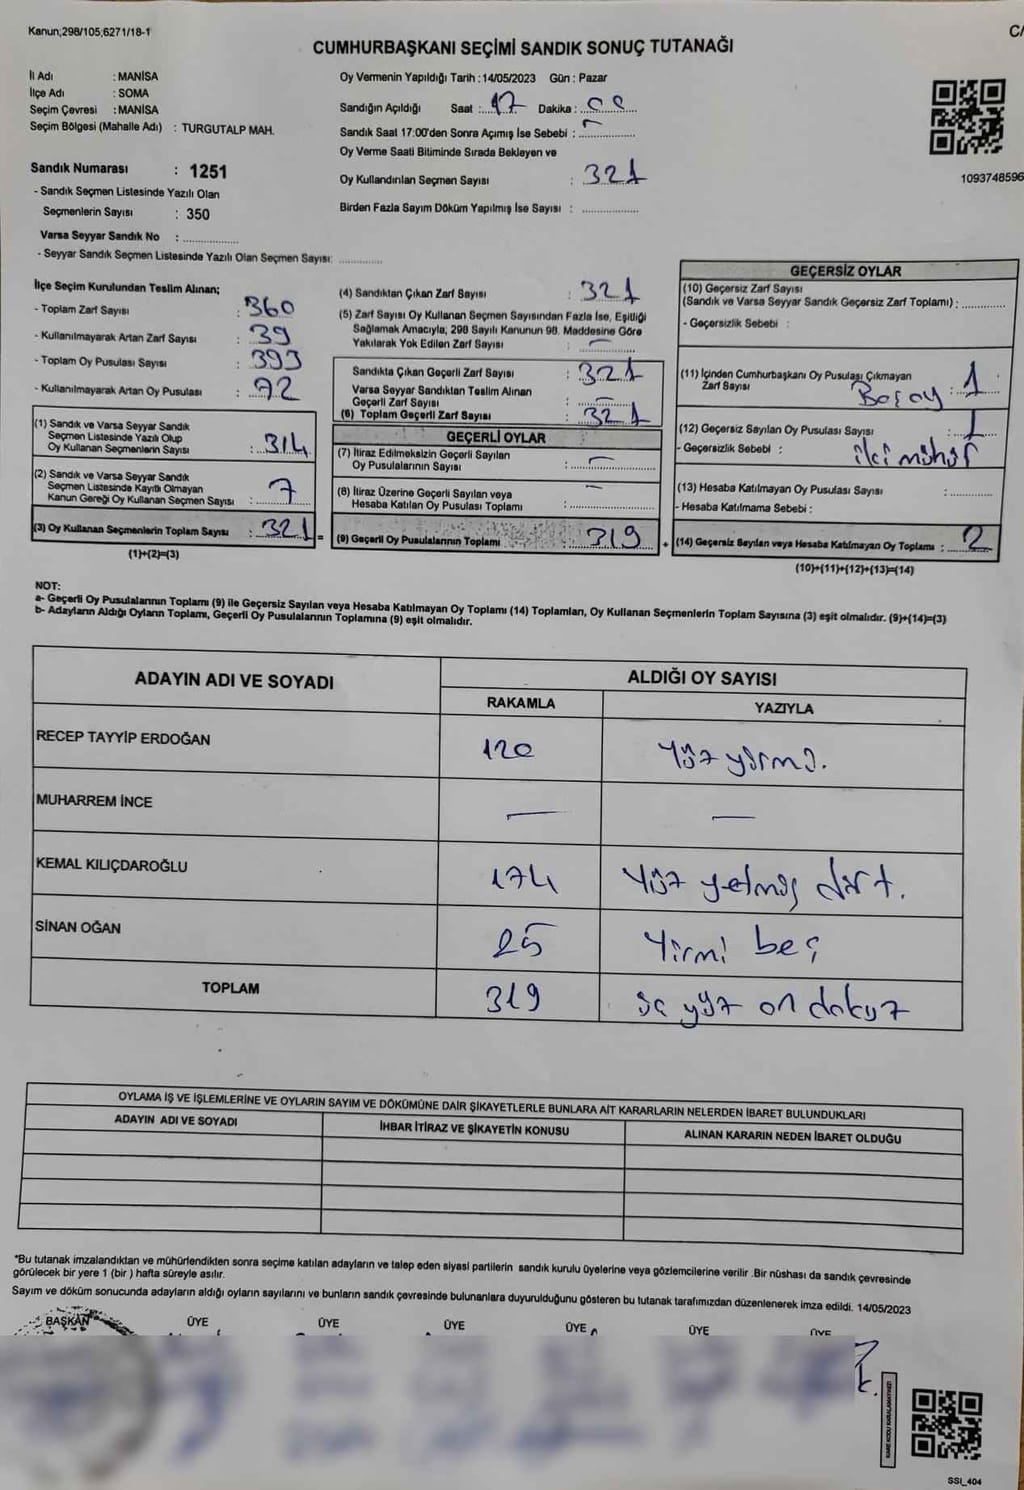 Kanun;298/105;6271/18-1
C/
CUMHURBAŞKANI SEÇİMİ SANDIK SONUÇ TUTANAĞI
İl Adı : MANİSA
İlçe Adı : SOMA
Seçim Çevresi : MANİSA
Seçim Bölgesi (Mahalle Adı) : TURGUTALP MAH.
Sandık Numarası : 1251
- Sandık Seçmen Listesinde Yazılı Olan
Seçmenlerin Sayısı : 350
Varsa Seyyar Sandık No : ................
- Seyyar Sandık Seçmen Listesinde Yazılı Olan Seçmen Sayısı: .............
Oy Vermenin Yapıldığı Tarih : 14/05/2023 Gün : Pazar
Sandığın Açıldığı Saat : 17 Dakika : 00
Sandık Saat 17:00'den Sonra Açımış İse Sebebi : —
Oy Verme Saati Bitiminde Sırada Bekleyen ve
Oy Kullandırılan Seçmen Sayısı : 321
Birden Fazla Sayım Döküm Yapılmış İse Sayısı : .................
1093748596
İlçe Seçim Kurulundan Teslim Alınan;
- Toplam Zarf Sayısı : 360
- Kullanılmayarak Artan Zarf Sayısı : 39
- Toplam Oy Pusulası Sayısı : 393
- Kullanılmayarak Artan Oy Pusulası : 72
(1) Sandık ve Varsa Seyyar Sandık
Seçmen Listesinde Yazılı Olup
Oy Kullanan Seçmenlerin Sayısı : 314
(2) Sandık ve Varsa Seyyar Sandık
Seçmen Listesinde Kayıtlı Olmayan
Kanun Gereği Oy Kullanan Seçmen Sayısı : 7
(3) Oy Kullanan Seçmenlerin Toplam Sayısı : 321 =
(1)+(2)=(3)
(4) Sandıktan Çıkan Zarf Sayısı : 321
(5) Zarf Sayısı Oy Kullanan Seçmen Sayısından Fazla İse, Eşitliği
Sağlamak Amacıyla, 298 Sayılı Kanunun 98. Maddesine Göre
Yakılarak Yok Edilen Zarf Sayısı : —
Sandıkta Çıkan Geçerli Zarf Sayısı : 321
Varsa Seyyar Sandıktan Teslim Alınan
Geçerli Zarf Sayısı : —
(6) Toplam Geçerli Zarf Sayısı : 321
GEÇERLİ OYLAR
(7) İtiraz Edilmeksizin Geçerli Sayılan
Oy Pusulalarının Sayısı : —
(8) İtiraz Üzerine Geçerli Sayılan veya
Hesaba Katılan Oy Pusulası Toplamı : —
(9) Geçerli Oy Pusulalarının Toplamı : 319 +
GEÇERSİZ OYLAR
(10) Geçersiz Zarf Sayısı
(Sandık ve Varsa Seyyar Sandık Geçersiz Zarf Toplamı) : .............
- Geçersizlik Sebebi :
(11) İçinden Cumhurbaşkanı Oy Pusulası Çıkmayan
Zarf Sayısı Boş oy : 1
(12) Geçersiz Sayılan Oy Pusulası Sayısı : 1
- Geçersizlik Sebebi : iki mühür
(13) Hesaba Katılmayan Oy Pusulası Sayısı : .............
- Hesaba Katılmama Sebebi :
(14) Geçersiz Sayılan veya Hesaba Katılmayan Oy Toplamı : 2
(10)+(11)+(12)+(13)=(14)
NOT:
a- Geçerli Oy Pusulalarının Toplamı (9) ile Geçersiz Sayılan veya Hesaba Katılmayan Oy Toplamı (14) Toplamları, Oy Kullanan Seçmenlerin Toplam Sayısına (3) eşit olmalıdır. (9)+(14)=(3)
b- Adayların Aldığı Oyların Toplamı, Geçerli Oy Pusulalarının Toplamına (9) eşit olmalıdır.
ADAYIN ADI VE SOYADI ALDIĞI OY SAYISI
RAKAMLA YAZIYLA
RECEP TAYYİP ERDOĞAN 120 Yüz yirmi.
MUHARREM İNCE — —
KEMAL KILIÇDAROĞLU 174 Yüz yetmiş dört.
SİNAN OĞAN 25 Yirmi beş
TOPLAM 319 üç yüz on dokuz
OYLAMA İŞ VE İŞLEMLERİNE VE OYLARIN SAYIM VE DÖKÜMÜNE DAİR ŞİKAYETLERLE BUNLARA AİT KARARLARIN NELERDEN İBARET BULUNDUKLARI
ADAYIN ADI VE SOYADI İHBAR İTİRAZ VE ŞİKAYETİN KONUSU ALINAN KARARIN NEDEN İBARET OLDUĞU
*Bu tutanak imzalandıktan ve mühürlendikten sonra seçime katılan adayların ve talep eden siyasi partilerin sandık kurulu üyelerine veya gözlemcilerine verilir .Bir nüshası da sandık çevresinde
görülecek bir yere 1 (bir ) hafta süreyle asılır.
Sayım ve döküm sonucunda adayların aldığı oyların sayılarını ve bunların sandık çevresinde bulunanlara duyurulduğunu gösteren bu tutanak tarafımızdan düzenlenerek imza edildi. 14/05/2023
BAŞKAN ÜYE ÜYE ÜYE ÜYE ÜYE ÜYE
KARE KODU KARALAMAYINIZ!
SSI_404